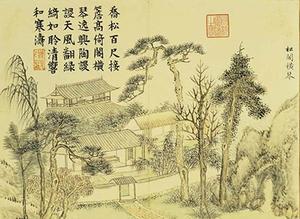 松閣橫琴
喬松百尺接
簷高倚閣橫
琴逸興陶謖
謖天風翻綠
綺如聆清響
和寒濤